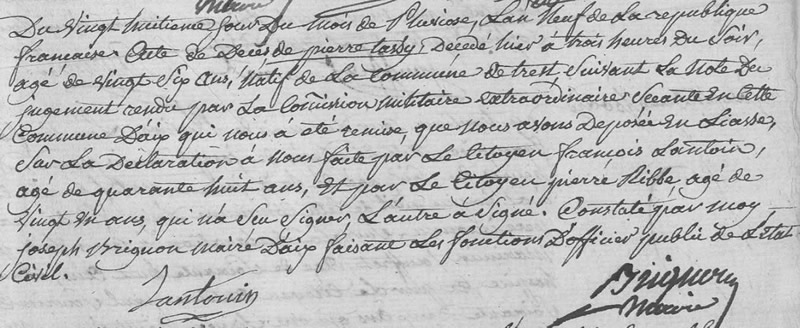 Du vingt huitieme jour du mois de Pluviose, L'an neuf de La republique
française. Acte de Décès de pierre tardy, Decedé hier à trois heures Du Soir,
agé de vingt Six ans, Natif de La Commune de trest, Suivant La Note Du
jugement rendu par La Coмission militaire extraordinaire Seéante En Cette
Commune D'aix qui nous à été remise, que nous avons Deposée En Liasse,
Sur La Declaration à Nous faite par Le Citoyen françois Lantoin,
agé de quarante huit ans, Et par Le Citoyen pierre Ribbe agé de
Vingt un ans, qui n'a Sçu Signer, L'autre à Signé. Constaté par moy
joseph Brignon maire D'aix faisant Les fonctions D'officier public de L'etat
Civil.
Lantouin
Brignon
maire